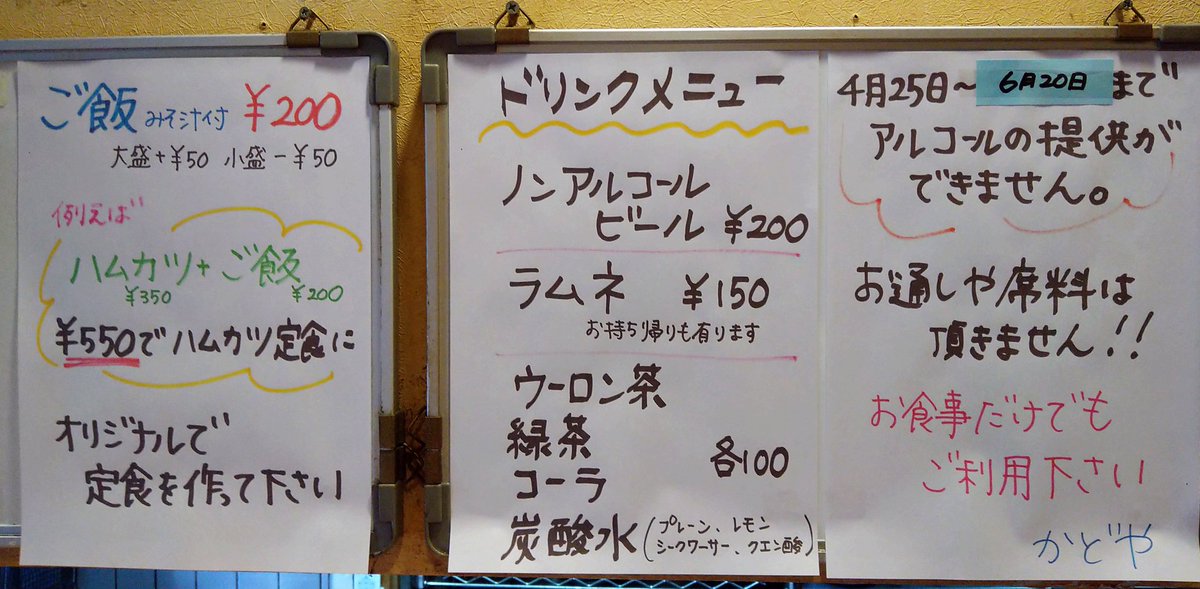 ご飯 みそ汁付 ¥200
大盛+¥50 小盛-¥50
例えば
ハムカツ+ご飯
¥350 ¥200
¥550でハムカツ定食に
オリジナルで
定食を作って下さい
ドリンクメニュー
ノンアルコール
ビール ¥200
ラムネ ¥150
お持ち帰りも有ります
ウーロン茶
緑茶
コーラ
各100
炭酸水(プレーン、レモン
シークワーサー、クエン酸)
4月25日~6月20日まで
アルコールの提供が
できません。
お通しや席料は
頂きません!!
お食事だけでも
ご利用下さい
かどや